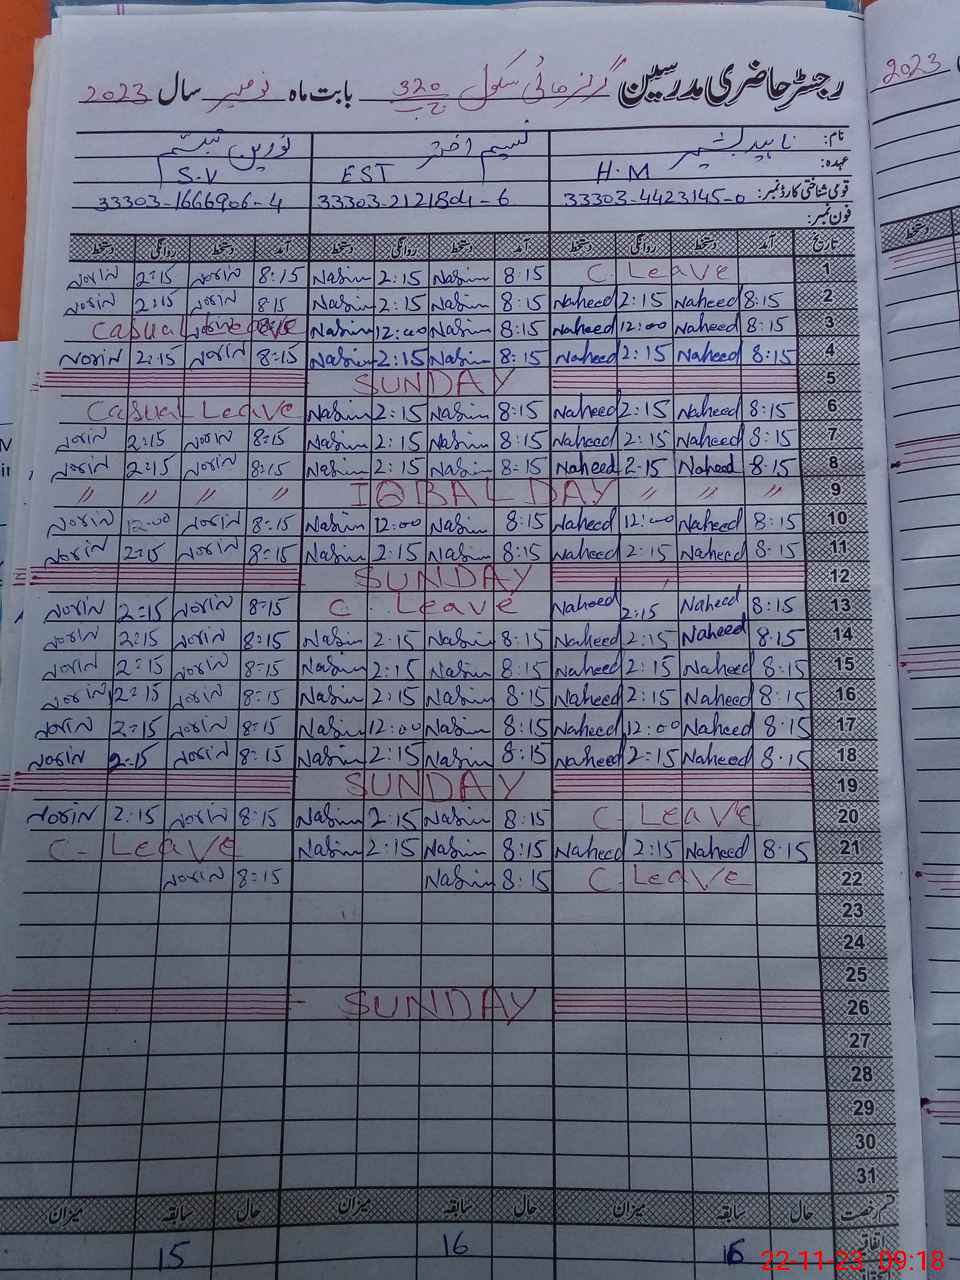 رجسٹر حاضری مدرسین گرلز ہائی سکول 320 ج ب بابت ماہ نومبر سال 2023
2023
نام: ناہید بشیر نسیم اختر نورین تبسم
عہدہ: H.M EST S.V
قومی شناختی کارڈ نمبر: 33303-4423145-0 33303-2121804-6 33303-1666906-4
فون نمبر:
تاریخ آمد دستخط روانگی دستخط آمد دستخط روانگی دستخط آمد دستخط روانگی دستخط
دستخط
1 C. Leave 8:15 Nasim 2:15 Nasim 8:15 Norin 2:15 Norin
2 8:15 Naheed 2:15 Naheed 8:15 Nasim 2:15 Nasim 8:15 Norin 2:15 Norin
3 8:15 Naheed 12:00 Naheed 8:15 Nasim 12:00 Nasim Casual Leave
4 8:15 Naheed 2:15 Naheed 8:15 Nasim 2:15 Nasim 8:15 Norin 2:15 Norin
5 SUNDAY
6 8:15 Naheed 2:15 Naheed 8:15 Nasim 2:15 Nasim Casual Leave
7 8:15 Naheed 2:15 Naheed 8:15 Nasim 2:15 Nasim 8:15 Norin 2:15 Norin
8 8:15 Naheed 2:15 Naheed 8:15 Nasim 2:15 Nasim 8:15 Norin 2:15 Norin
9 〃 〃 〃 IQBAL DAY 〃 〃 〃 〃
10 8:15 Naheed 12:00 Naheed 8:15 Nasim 12:00 Nasim 8:15 Norin 12:00 Norin
11 8:15 Naheed 2:15 Naheed 8:15 Nasim 2:15 Nasim 8:15 Norin 2:15 Norin
12 SUNDAY
13 8:15 Naheed 2:15 Naheed C. Leave 8:15 Norin 2:15 Norin
14 8:15 Naheed 2:15 Naheed 8:15 Nasim 2:15 Nasim 8:15 Norin 2:15 Norin
15 8:15 Naheed 2:15 Naheed 8:15 Nasim 2:15 Nasim 8:15 Norin 2:15 Norin
16 8:15 Naheed 2:15 Naheed 8:15 Nasim 2:15 Nasim 8:15 Norin 2:15 Norin
17 8:15 Naheed 12:00 Naheed 8:15 Nasim 12:00 Nasim 8:15 Norin 2:15 Norin
18 8:15 Naheed 2:15 Naheed 8:15 Nasim 2:15 Nasim 8:15 Norin 2:15 Norin
19 SUNDAY
20 C. Leave 8:15 Nasim 2:15 Nasim 8:15 Norin 2:15 Norin
21 8:15 Naheed 2:15 Naheed 8:15 Nasim 2:15 Nasim C. Leave
22 C. Leave 8:15 Nasim 8:15 Norin
23
24
25
26 SUNDAY
27
28
29
30
31
قسم رخصت حال سابقہ میزان حال سابقہ میزان حال سابقہ میزان
اتفاقیہ 16 16 15
22-11-23 09:18